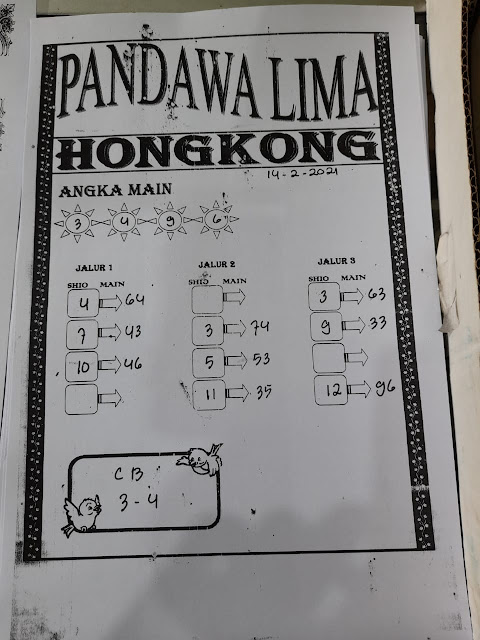 PANDAWA LIMA
HONGKONG
14-2-2021
ANGKA MAIN
3 4 9 6
JALUR 1
SHIO MAIN
4 64
7 43
10 46
JALUR 2
SHIO MAIN
3 74
5 53
11 35
JALUR 3
SHIO MAIN
3 63
9 33
12 96
CB
3-4